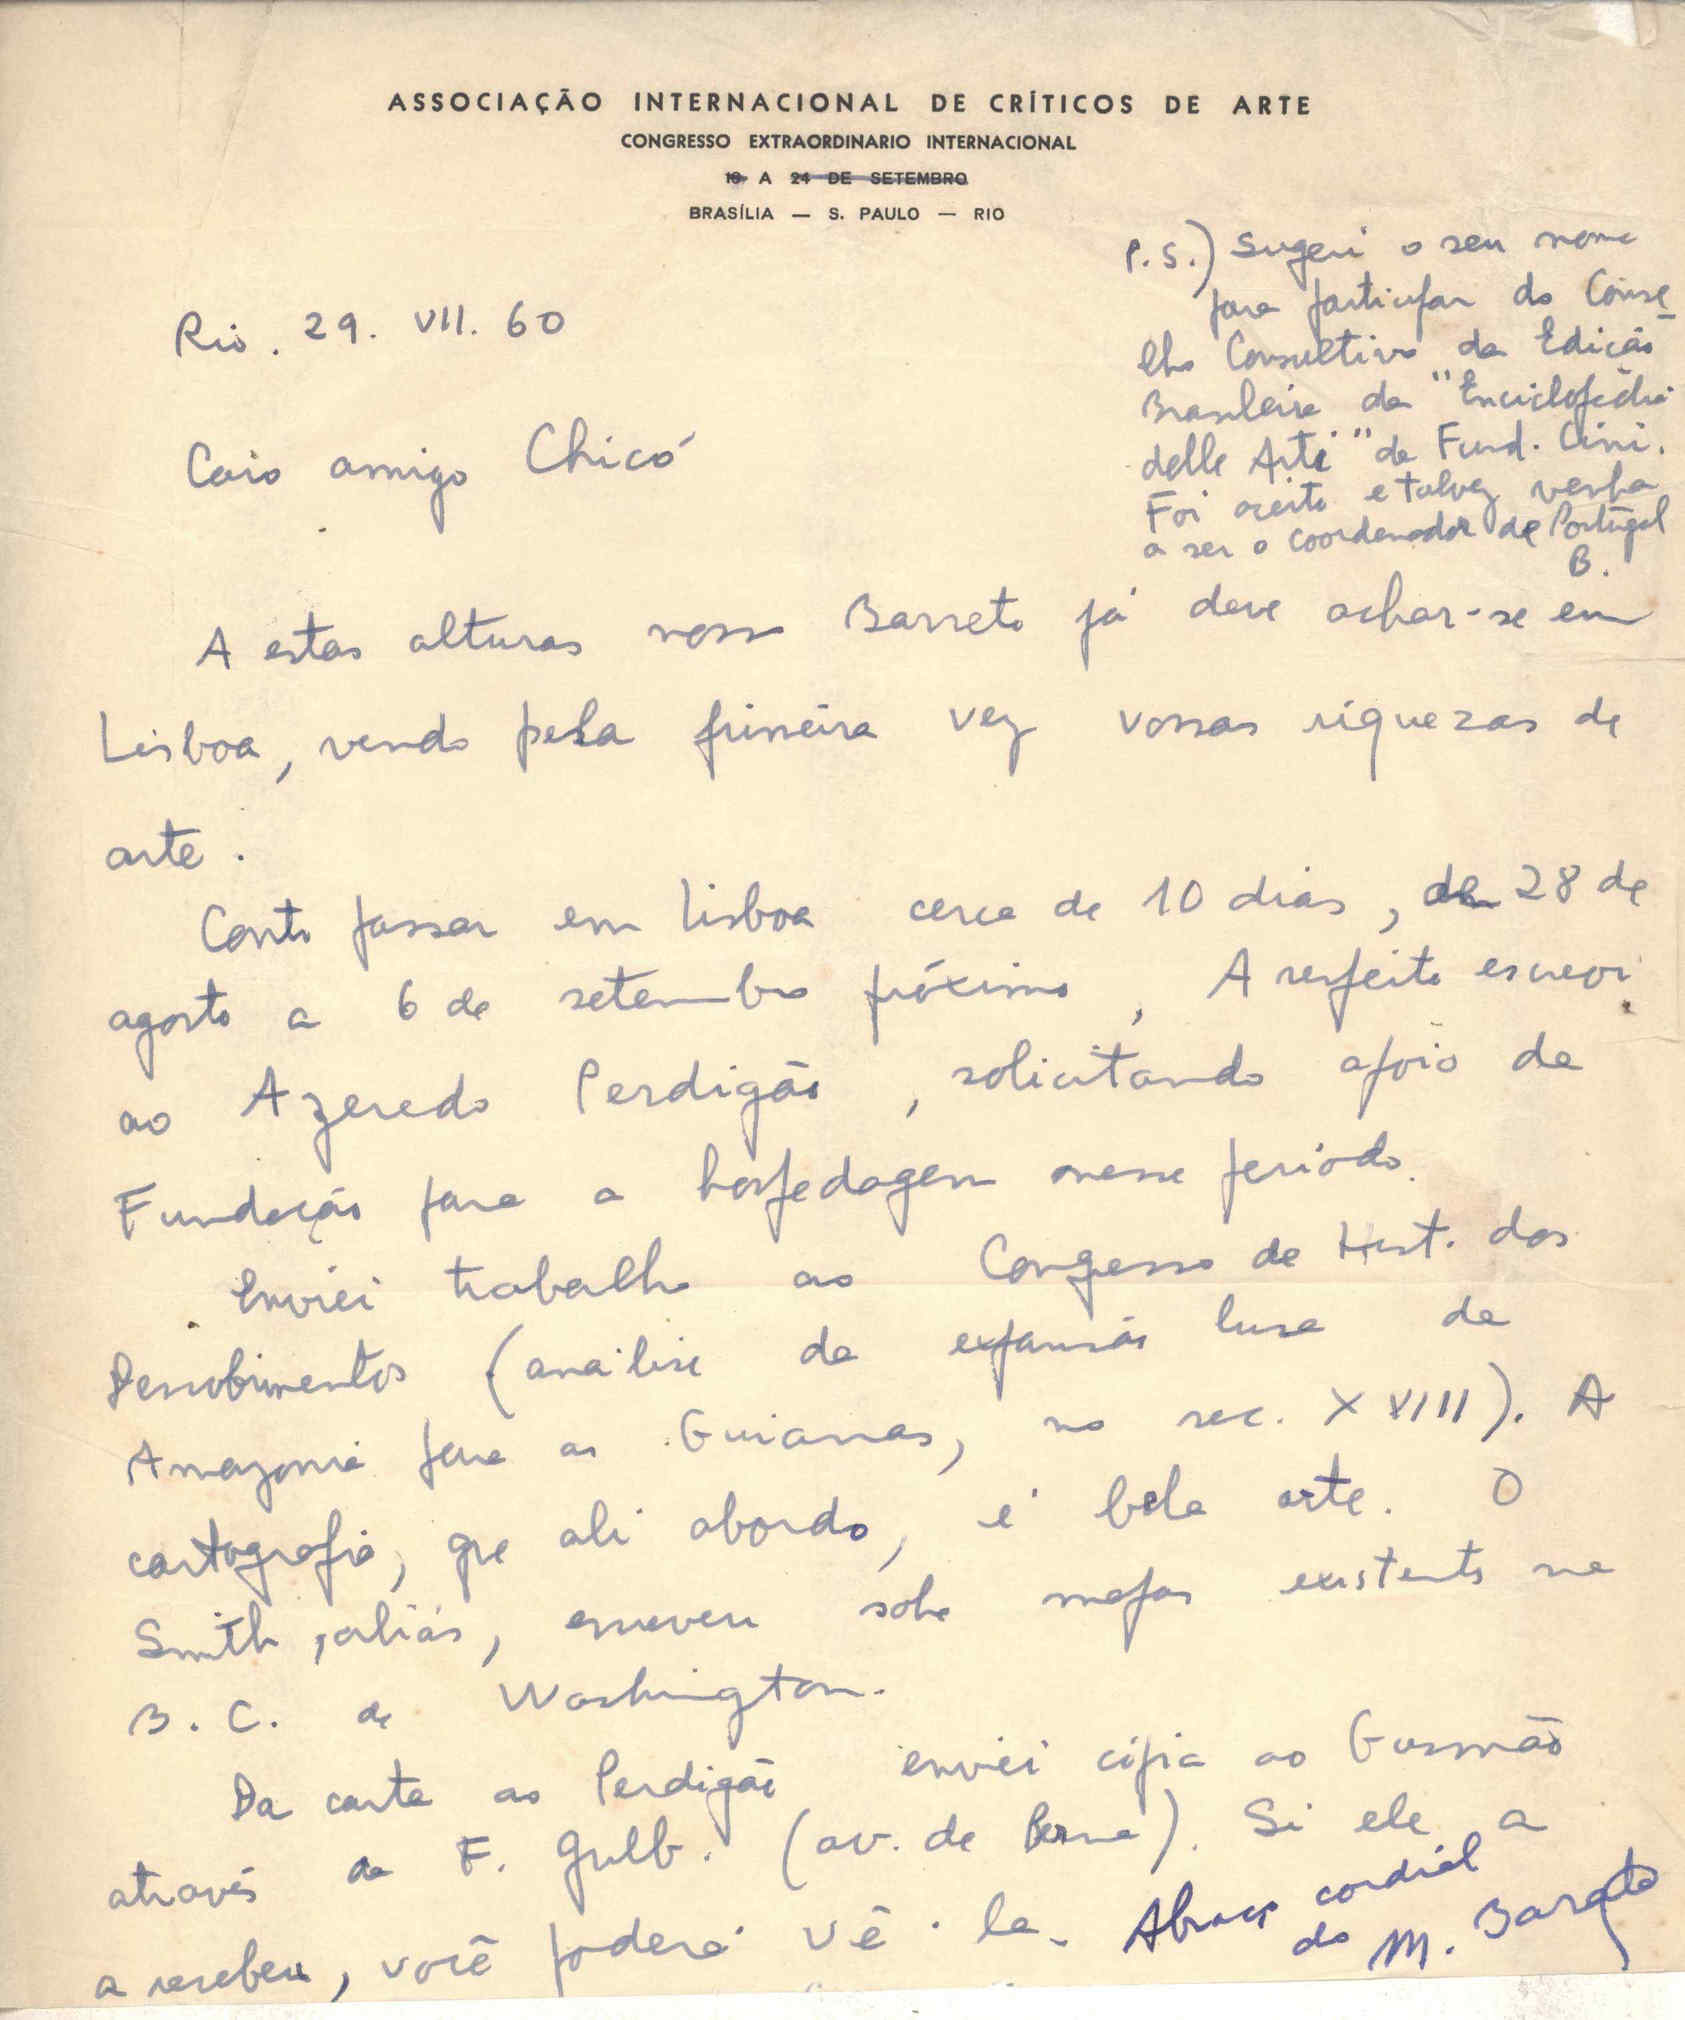 ASSOCIAÇÃO INTERNACIONAL DE CRÍTICOS DE ARTE
CONGRESSO EXTRAORDINARIO INTERNACIONAL
19 A 24 DE SETEMBRO
BRASÍLIA — S. PAULO — RIO
P.S.) Sugeri o seu nome
para participar do Conse
lho Consultivo da Edição
Brasileira da "Enciclopédia
delle Arti" da Fund. Cini.
Foi aceito e talvez venha
a ser o coordenador de Portugal
B.
Rio. 29. VII. 60
Caio amigo Chicó
A estas alturas nosso Barreto já deve achar-se em
Lisboa, vendo pela primeira vez vossas riquezas de
arte.
Conto passar em Lisboa cerca de 10 dias, de 28 de
agosto a 6 de setembro próximo, A respeito escrevi
ao Azeredo Perdigão, solicitando apoio da
Fundação para a hospedagem nesse período.
Enviei trabalho ao Congresso de Hist. dos
Descobrimentos (análise da expansão lusa da
Amazonia para as Guianas, no sec. XVIII). A
cartografia, que ali abordo, é bela arte. O
Smith, aliás, escreveu sobre mapas existents na
B. C. de Washington.
Da carta ao Perdigão enviei cópia ao Gusmão
através da F. Gulb. (av. de Berna). Si ele a
a recebeu, você poderá vê-la. Abraço cordial
do M. Barata